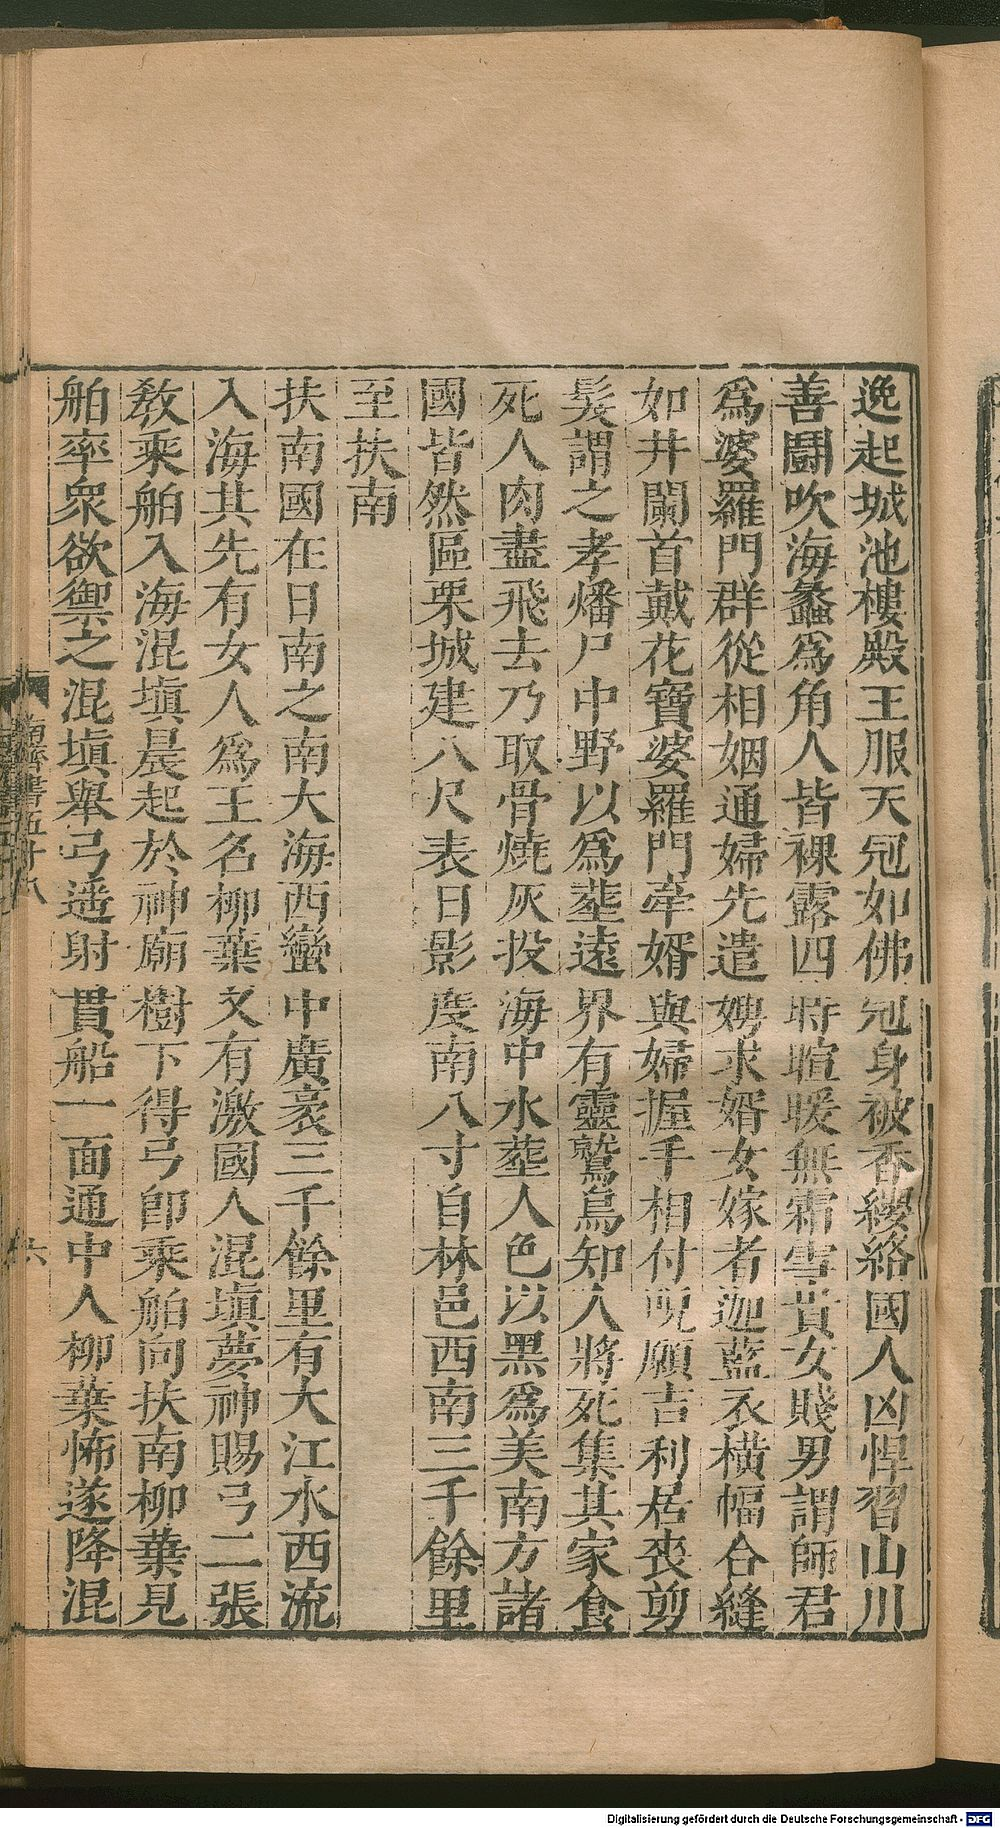 逸起城池樓殿王服天冠如佛冠身被香纓絡國人凶悍習山川
善鬬吹海蠡爲角人皆裸露四時暄暖無霜雪貴女賤男謂師君
爲婆羅門群從相姻通婦先遣娉求婿女嫁者迦藍衣橫幅合縫
如井闌首戴花寶婆羅門牽婿與婦握手相付呪願吉利居喪剪
髮謂之孝燔尸中野以爲塟遠界有靈鷲鳥知人將死集其家食
死人肉盡飛去乃取骨燒灰投海中水塟人色以黑爲美南方諸
國皆然區栗城建八尺表日影度南八寸自林邑西南三千餘里
至扶南
扶南國在日南之南大海西蠻中廣袤三千餘里有大江水西流
入海其先有女人爲王名柳葉又有激國人混塡夢神賜弓二張
敎乘舶入海混塡晨起於神廟樹下得弓卽乘舶向扶南柳葉見
舶率衆欲禦之混塡舉弓遥射貫船一面通中人柳葉怖遂降混
南齊書五十八
六
Digitalisierung gefördert durch die Deutsche Forschungsgemeinschaft - DFG